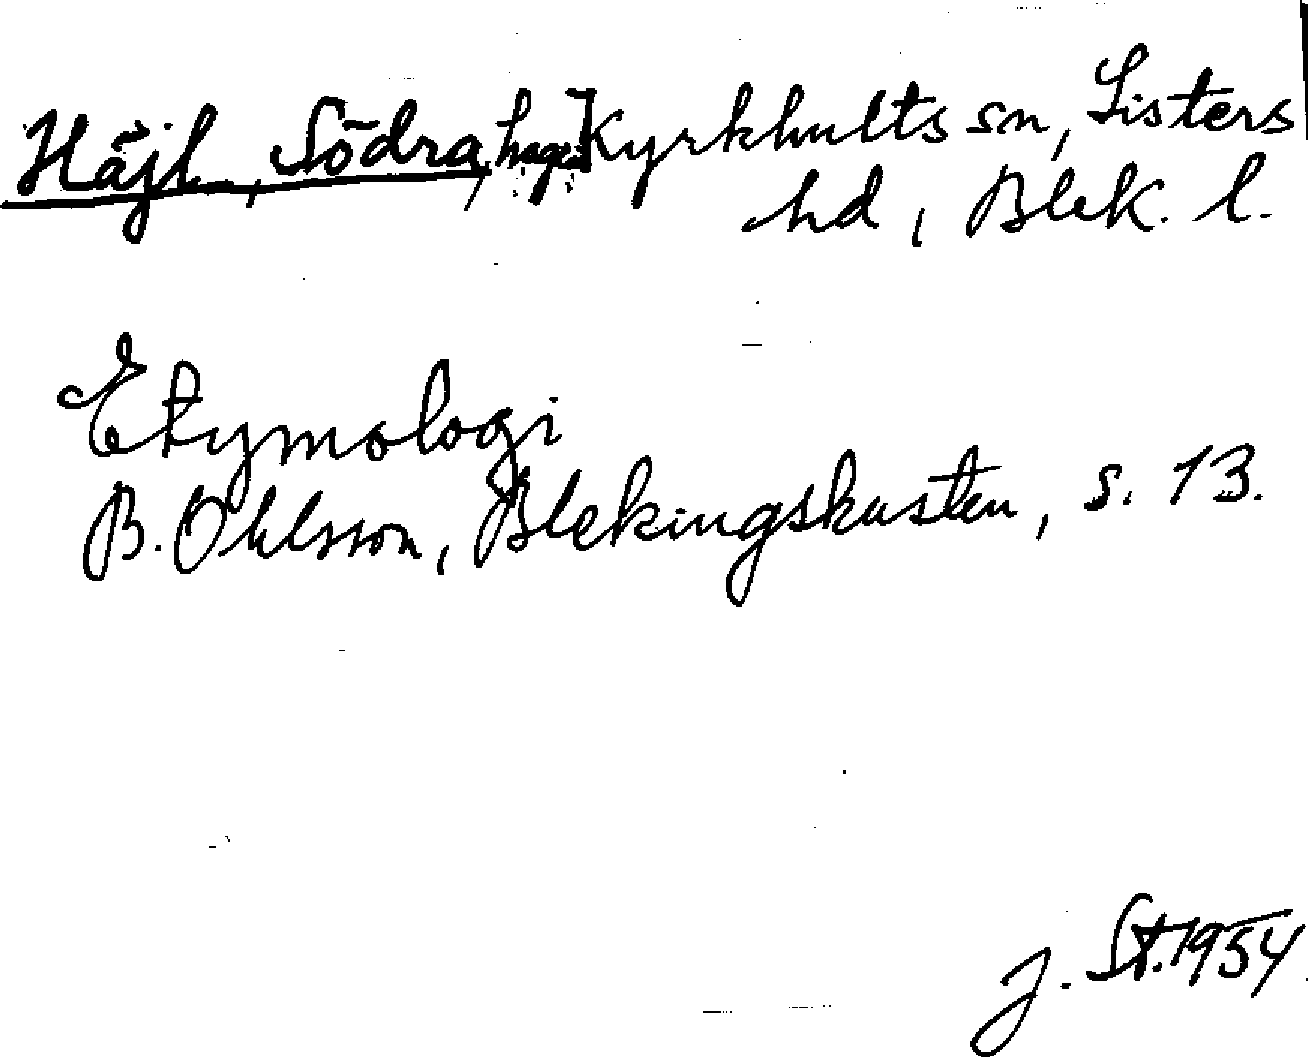 Häjl, Södra, hagen] Kyrkhults sn, Listers
hd, Blek. l.
Etymologi
B. Ohlsson, Blekingskusten, s. 13.
J. St. 1954